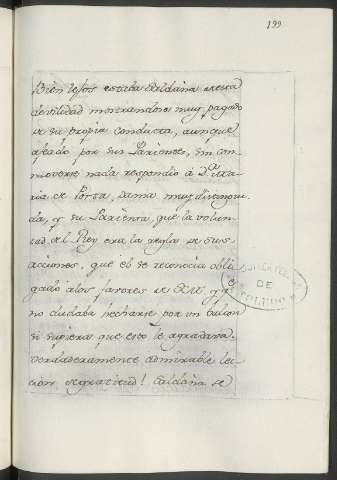 199
Bien lejos estaba Saldaña de esta
devilidad mostrandose muy pagado
de su propia conducta, aunque
afeado por sus Parientes, sin con
moverse nada respondió á D.ª Ma
ria de Porsa, Dama muy distingui
da, y su Parienta, que la volun
tad del Rey era la regla de sus
acciones, que el se reconocia obli
gado alos favores de S.M. y q.e
no dudaba hecharse por un balcon
si supiera que esto le agradaria.
Verdaderamente admirable lec
cion de gratitud! Saldaña se
DE
TOLEDO